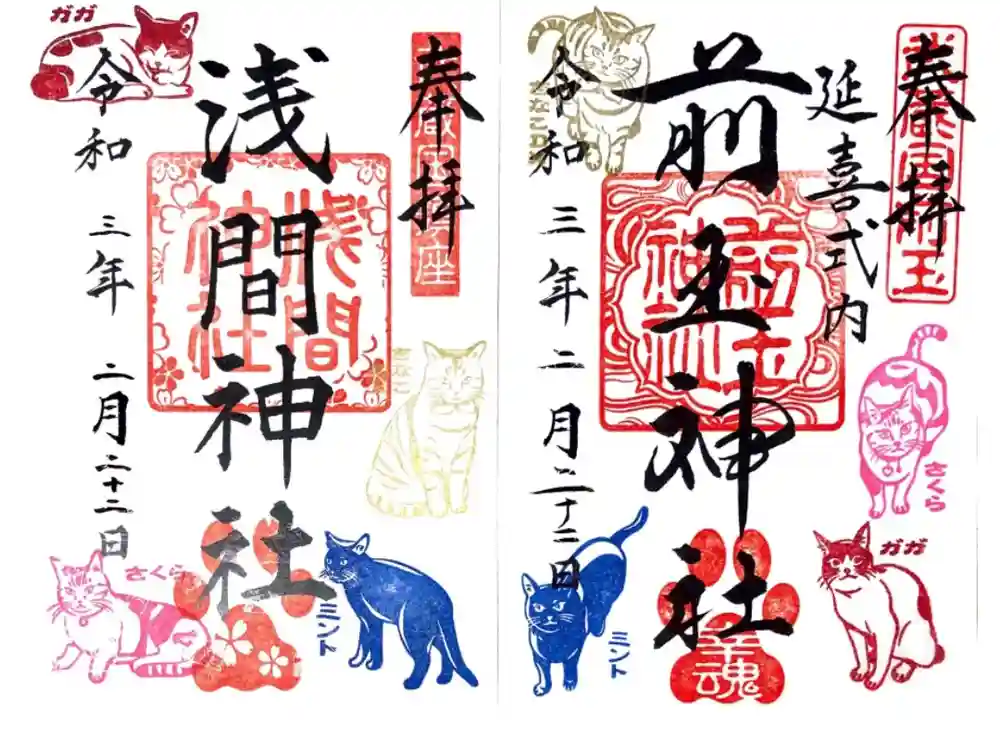 奉拝
延喜式内
前玉神社
令和三年二月二十二日
きなこ
さくら
ガガ
ミント
前玉神社
幸魂
奉拝
浅間神社
令和三年二月二十二日
ガガ
きなこ
さくら
ミント
浅間神社